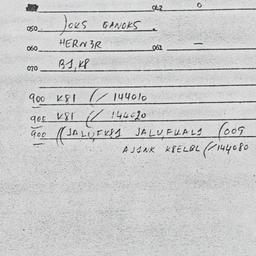 062 0
050 )OKS GANOKS .
060 HERN3R 061 —
070 B1, K8
900 K81 (/ 144010
90E K81 (/ 144020
900 ((JALU,FK81 JALU,FUAL1 (009
A11NK K8ELBL (/144080